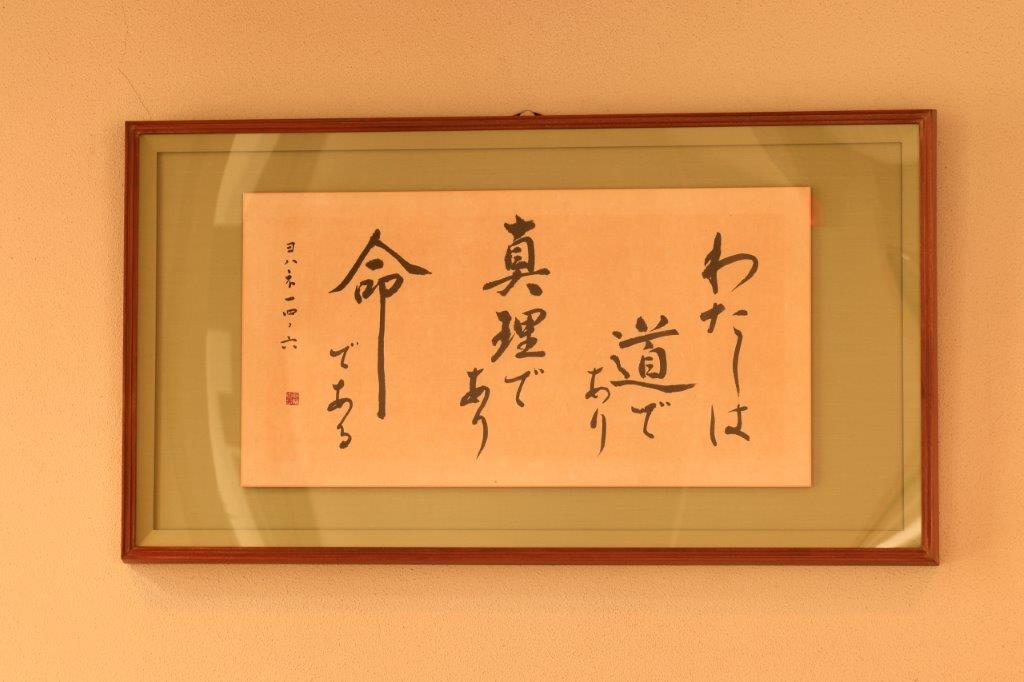 わたしは
道で
あり
真理で
あり
命
である
ヨハネ一四、六